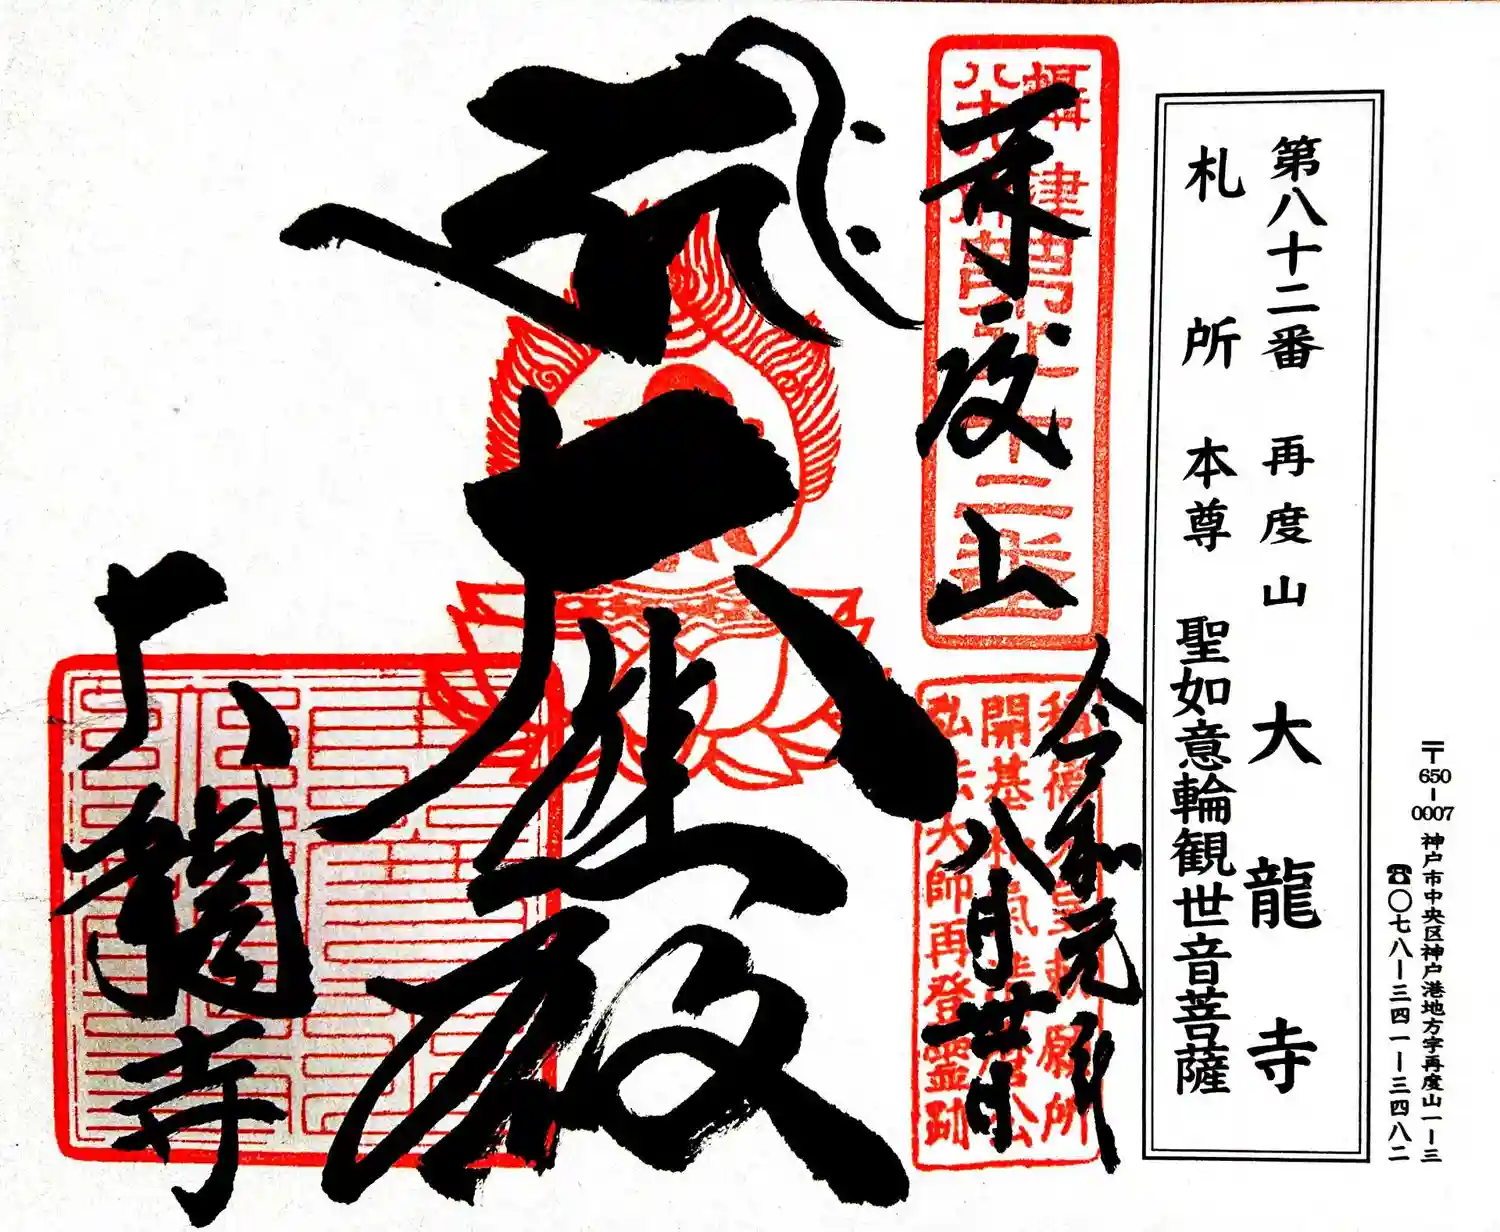 〒650-0007 神戸市中央区神戸港地方字再度山一ー三
☎〇七八ー三四一ー三四八二
第八十二番 再度山 大龍寺
札所 本尊 聖如意輪観世音菩薩
摂津
八十八所
第八十二番
再度山
開基和氣清麿公
弘法大師再登霊跡
令和元年
八月廿日
大悲殿
大龍寺